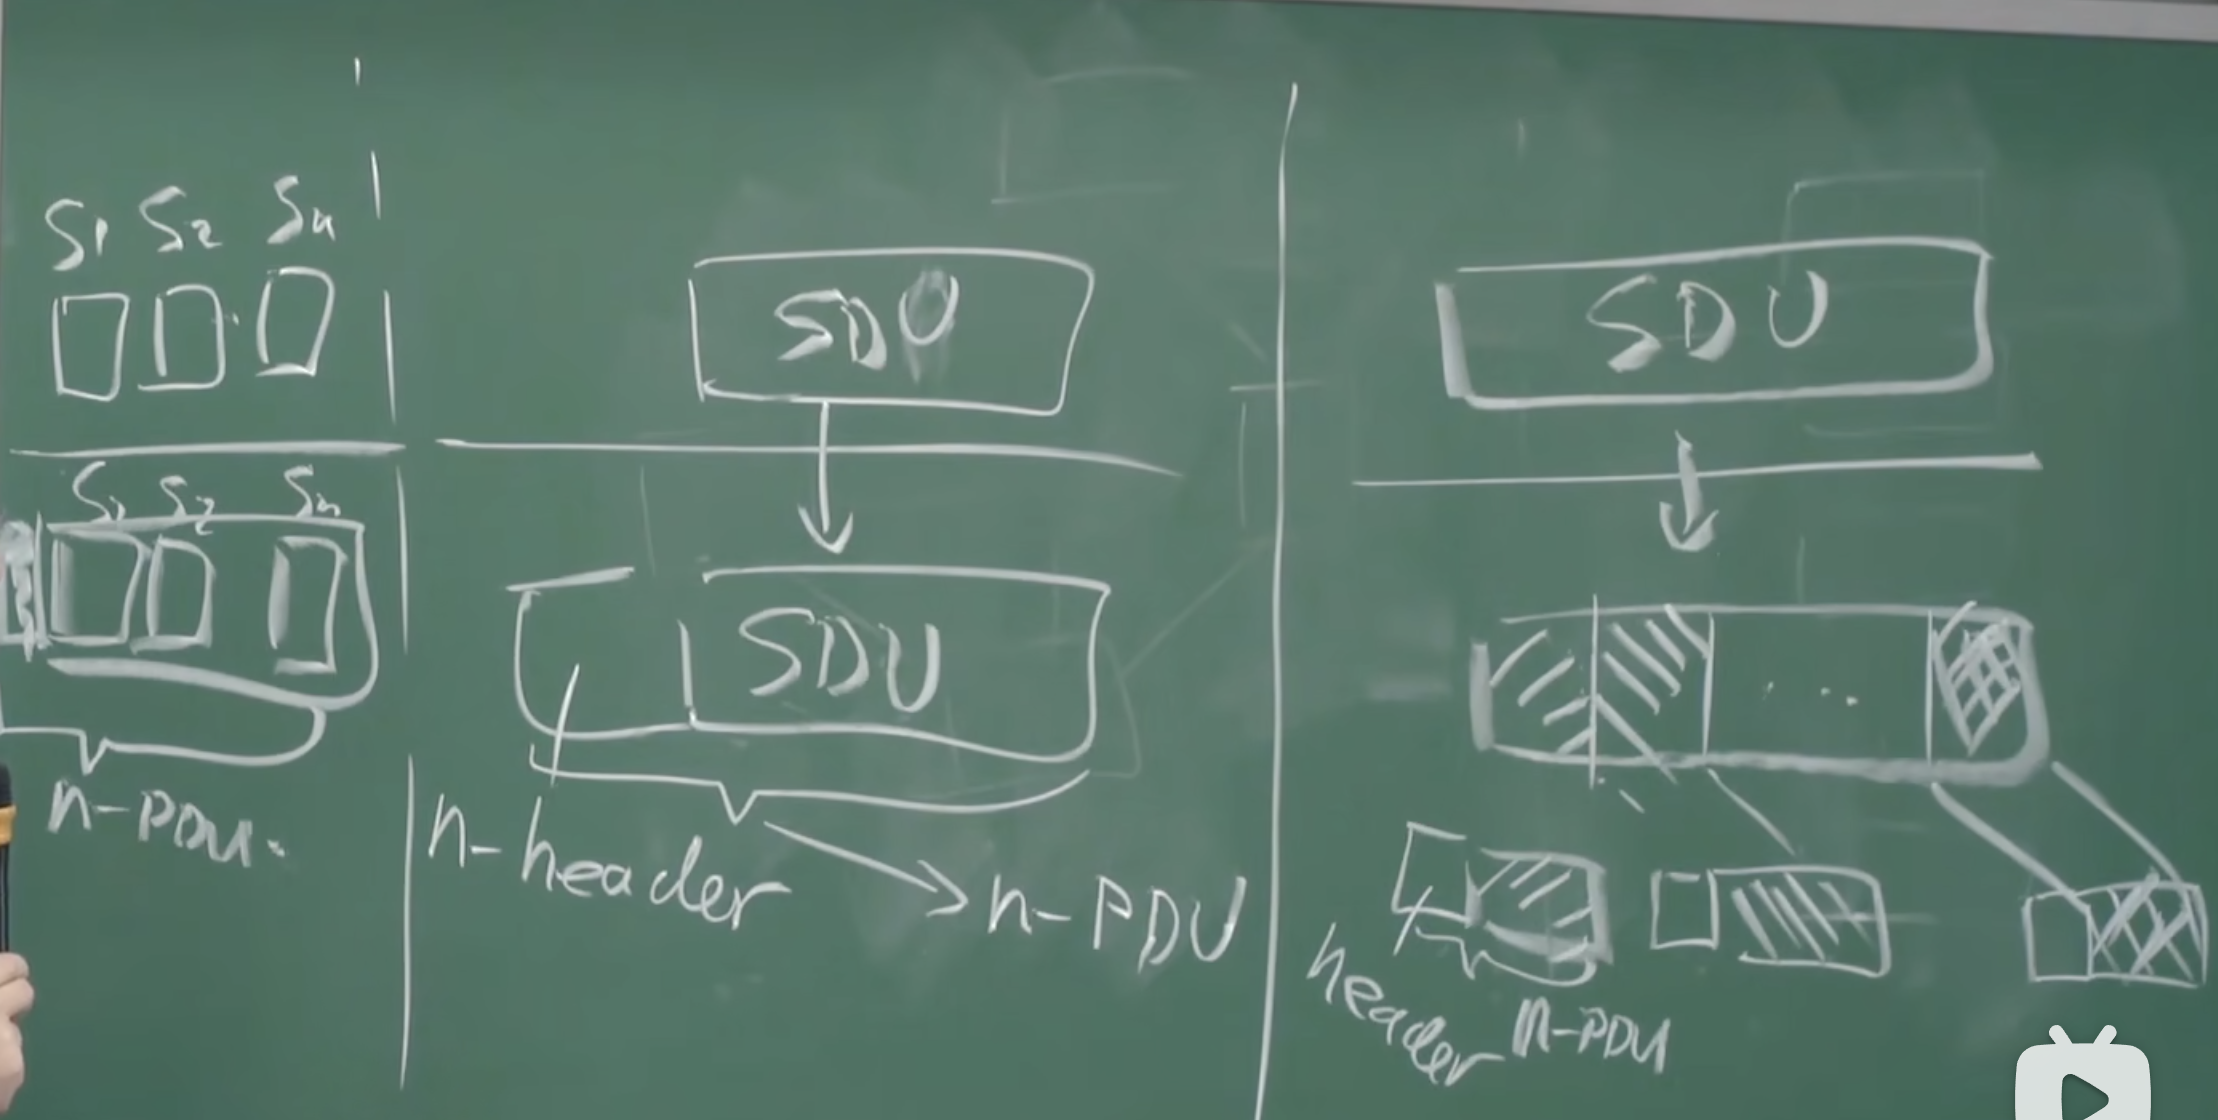 S1 S2 Sn
S1 S2 Sn
n-PDU.
SDU
SDU
n-header
n-PDU
SDU
header
n-PDU